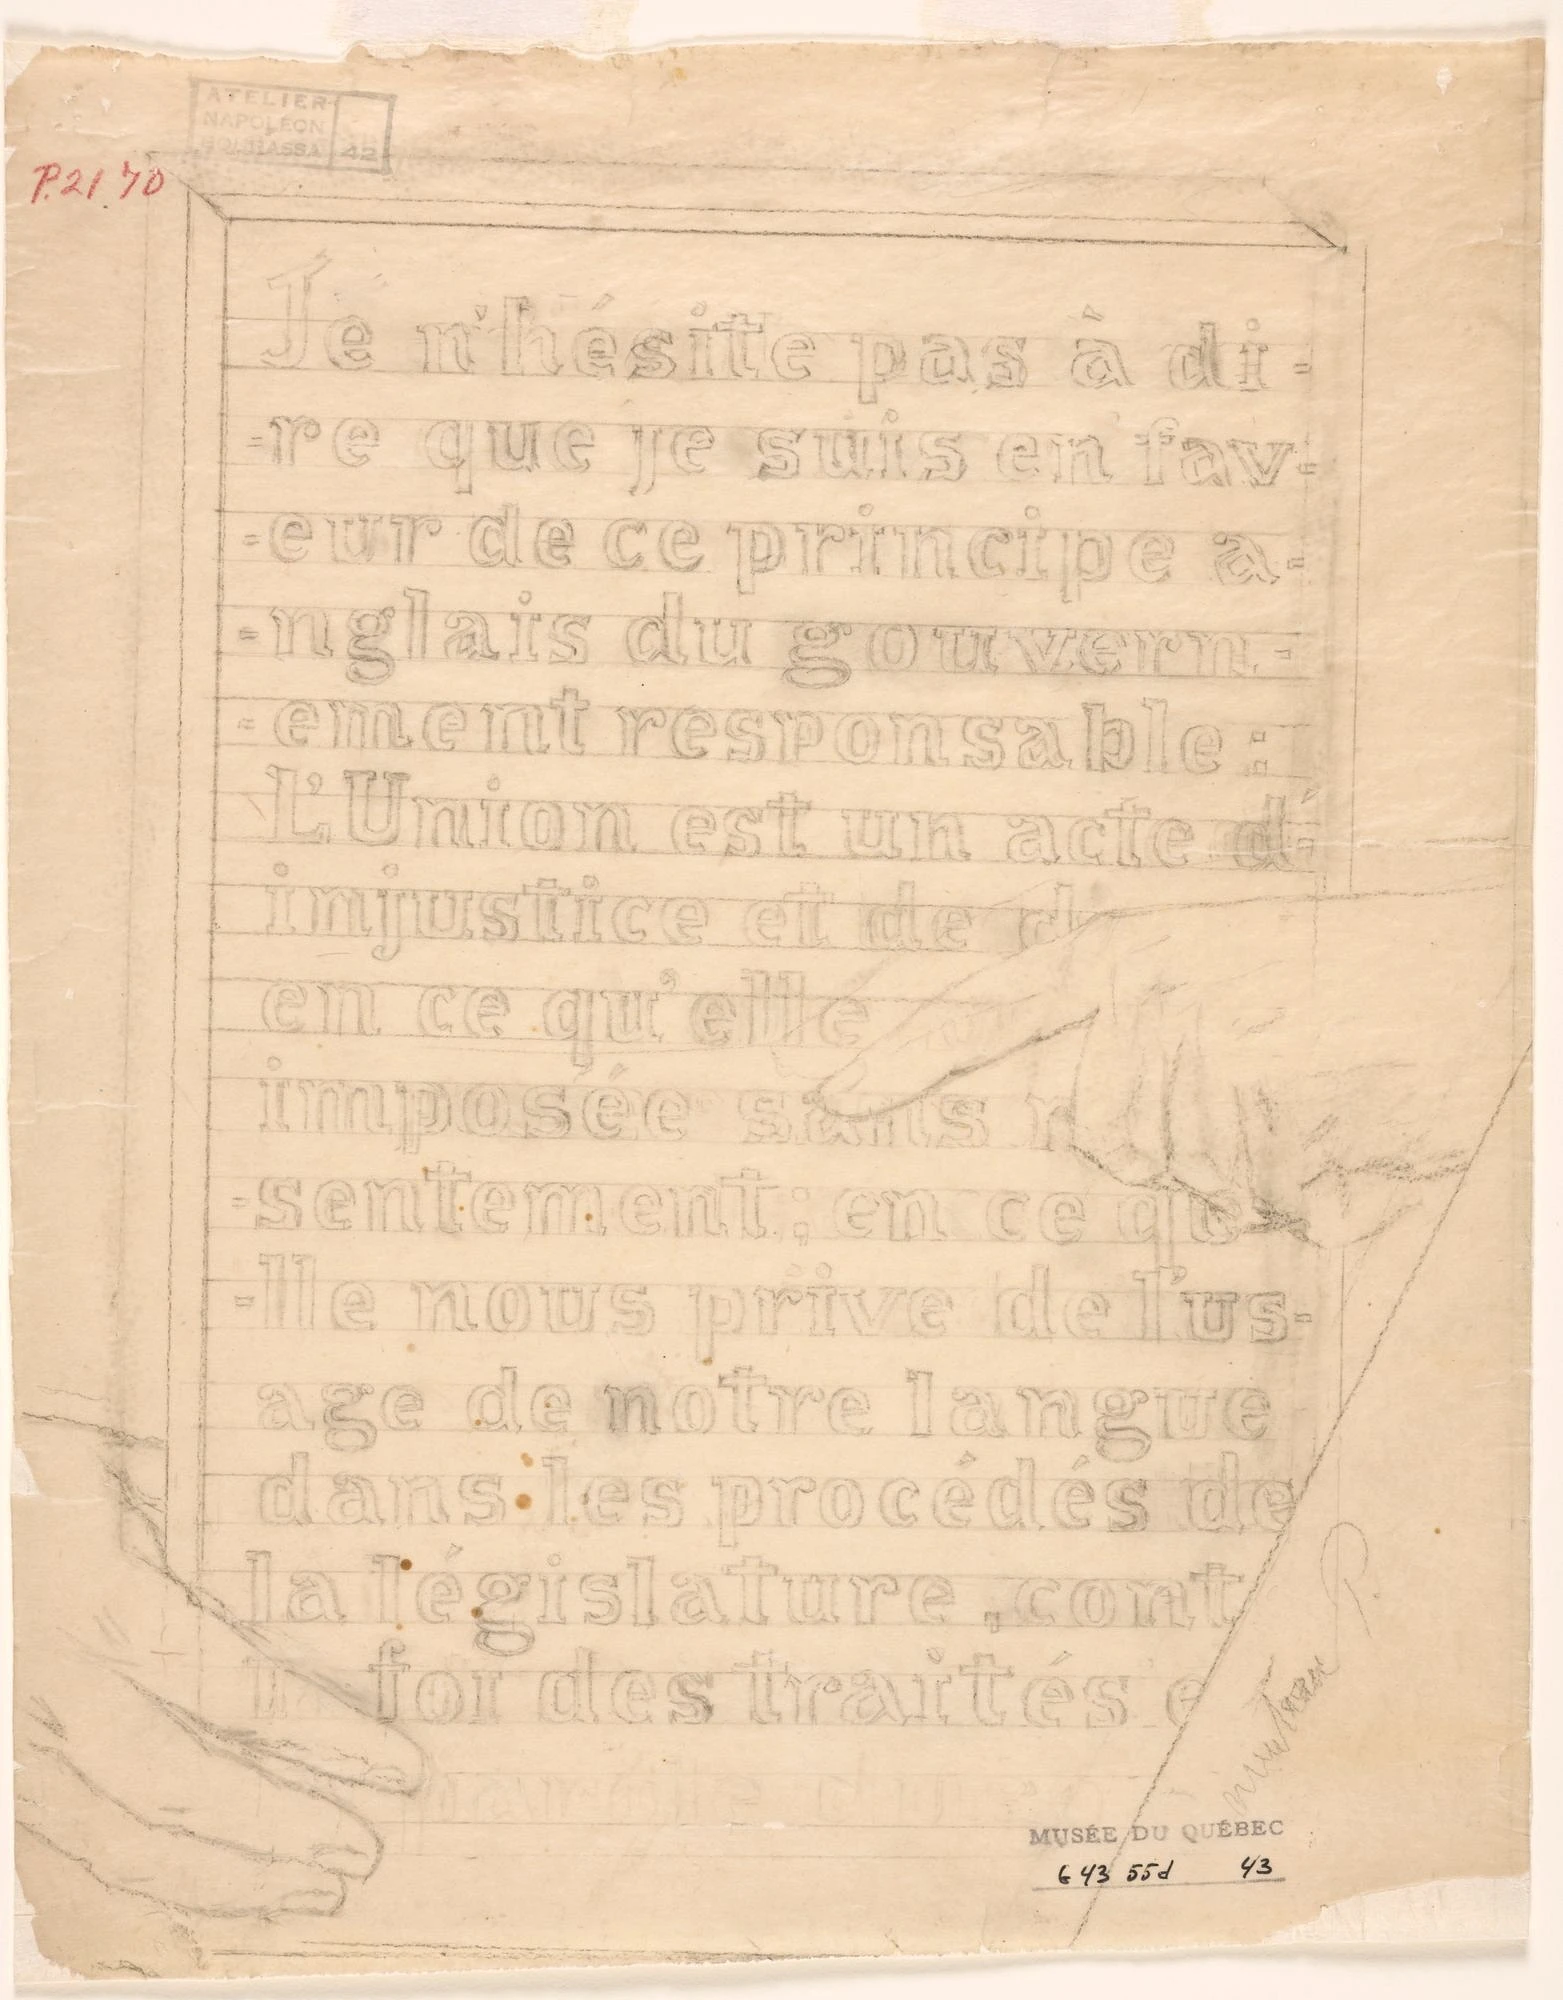 ATELIER
NAPOLÉON
BOURASSA 42
P.21.70
Je n'hésite pas à di-
=re que je suis en fav-
=eur de ce principe a-
=nglais du gouvern-
=ement responsable :
L'Union est un acte d'
injustice et de d
en ce qu'elle
imposée sans n
=sentement ; en ce qe
=lle nous prive de l'us-
age de notre langue
dans les procédés de
la législature , cont
foi des traités e
MUSÉE DU QUÉBEC
G 43 55d 43